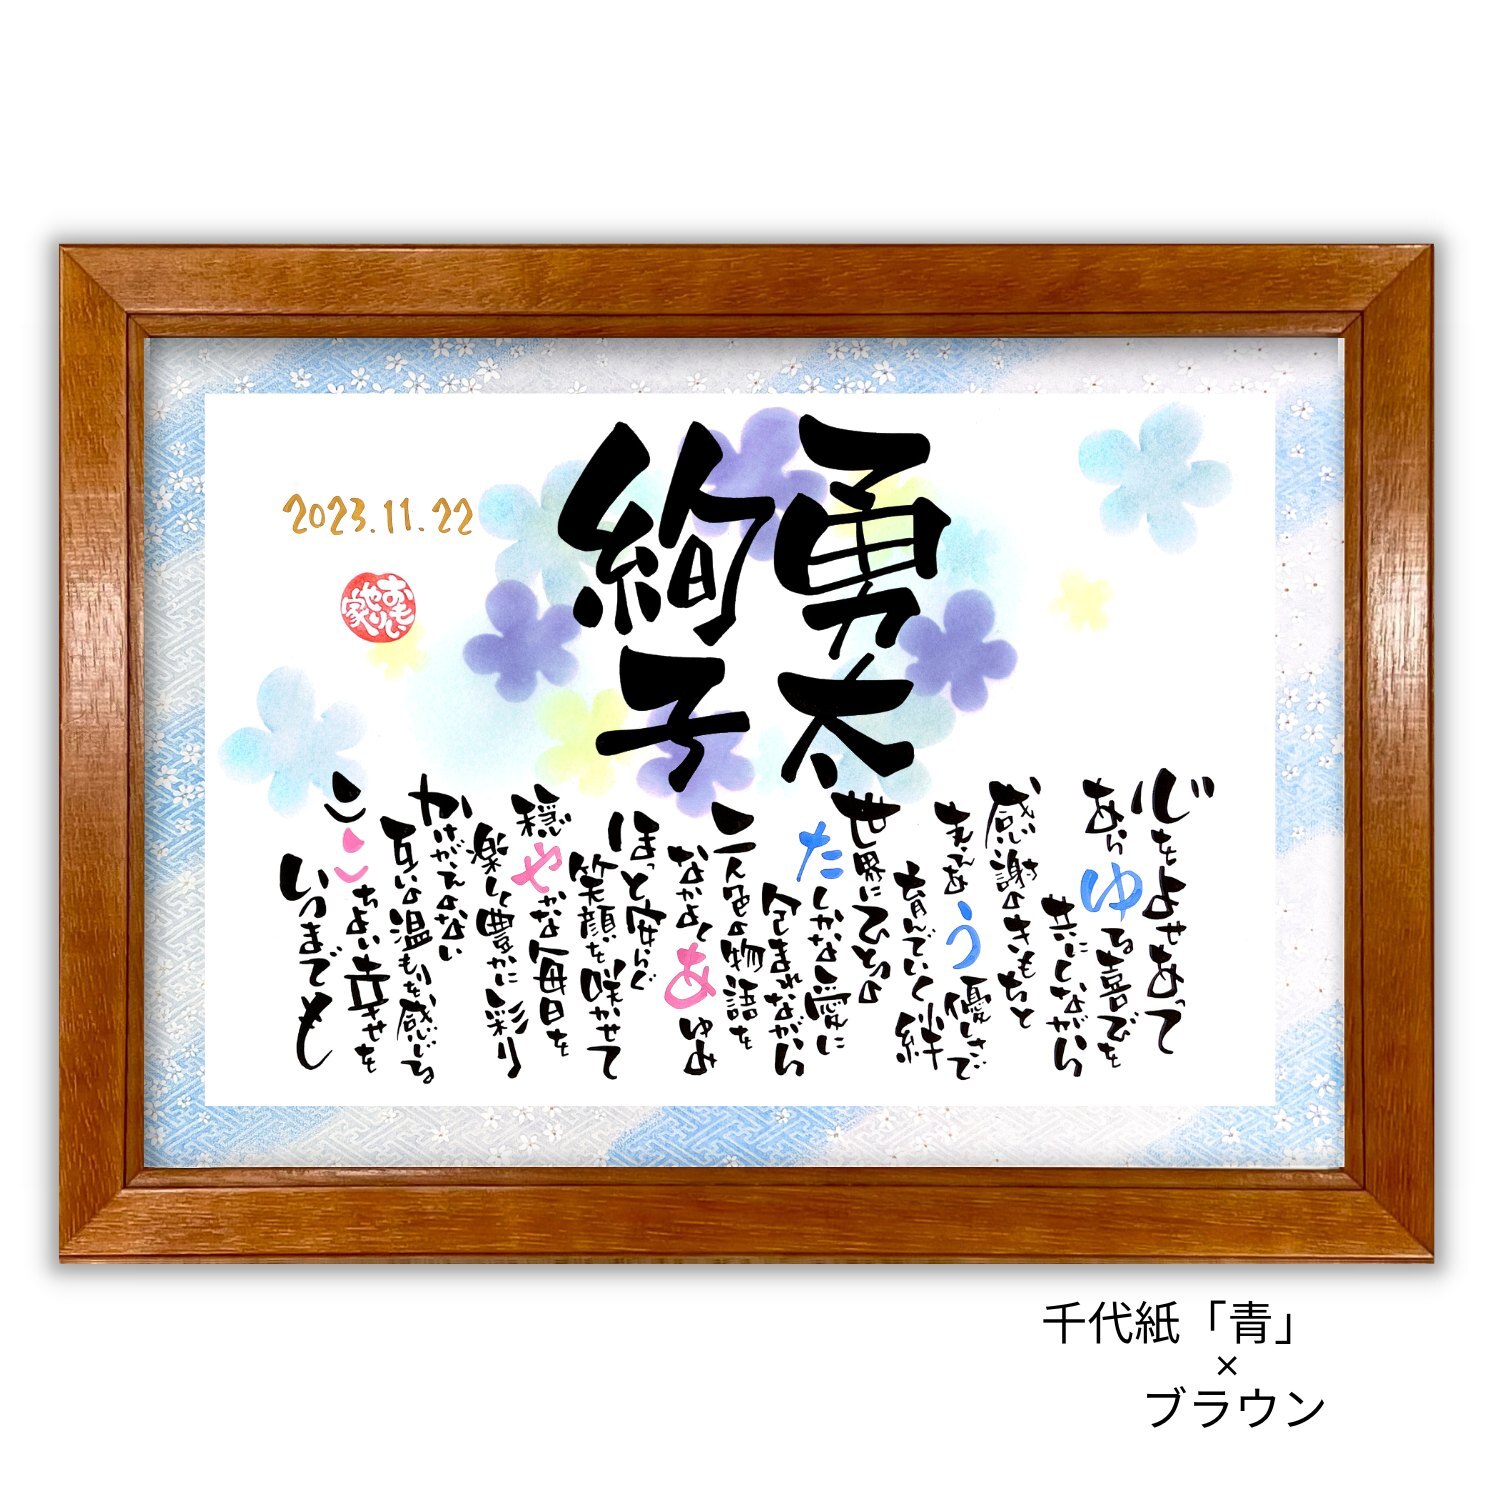 勇太
絢子
心をよせあって
あらゆる喜びを
共にしながら
感謝のきもちと
まっすぐ
う
優しさで
育んでいく絆
世界にひとつの
たしかな愛に
包まれながら
二人色の物語を
なかよくあゆみ
ほっと安らぐ
笑顔を咲かせて
穏やかな毎日を
楽しく豊かに彩り
かけがえのない
互いの温もりを感じる
ここちよい幸せを
いつまでも
2023.11.22
おもいやり家
千代紙「青」
×
ブラウン